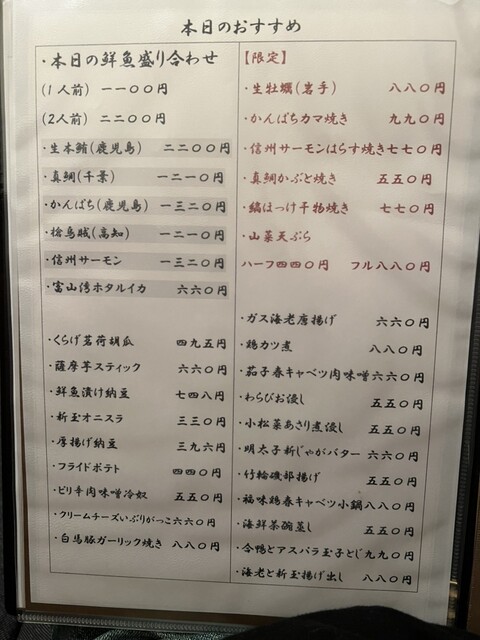 本日のおすすめ
・本日の鮮魚盛り合わせ
(1人前) 一一〇〇円
(2人前) 二二〇〇円
・生本鮪(鹿児島) 二二〇〇円
・真鯛(千葉) 一二一〇円
・かんぱち(鹿児島) 一三二〇円
・槍烏賊(高知) 一二一〇円
・信州サーモン 一三二〇円
・富山湾ホタルイカ 六六〇円
・くらげ茗荷胡瓜 四九五円
・薩摩芋スティック 六六〇円
・鮮魚漬け納豆 七四八円
・新玉オニスラ 三三〇円
・厚揚げ納豆 三九六円
・フライドポテト 四四〇円
・ピリ辛肉味噌冷奴 五五〇円
・クリームチーズいぶりがっこ六六〇円
・白馬豚ガーリック焼き 八八〇円
【限定】
・生牡蠣(岩手) 八八〇円
・かんぱちカマ焼き 九九〇円
・信州サーモンはらす焼き七七〇円
・真鯛かぶと焼き 五五〇円
・縞ほっけ干物焼き 七七〇円
・山菜天ぷら
ハーフ四四〇円 フル八八〇円
・ガス海老唐揚げ 六六〇円
・鶏カツ煮 八八〇円
・茄子春キャベツ肉味噌六六〇円
・わらびお浸し 五五〇円
・小松菜あさり煮浸し 五五〇円
・明太子新じゃがバター 六六〇円
・竹輪磯部揚げ 五五〇円
・福味鶏春キャベツ小鍋八八〇円
・海鮮茶碗蒸し 五五〇円
・合鴨とアスパラ玉子とじ九九〇円
・海老と新玉揚げ出し 八八〇円